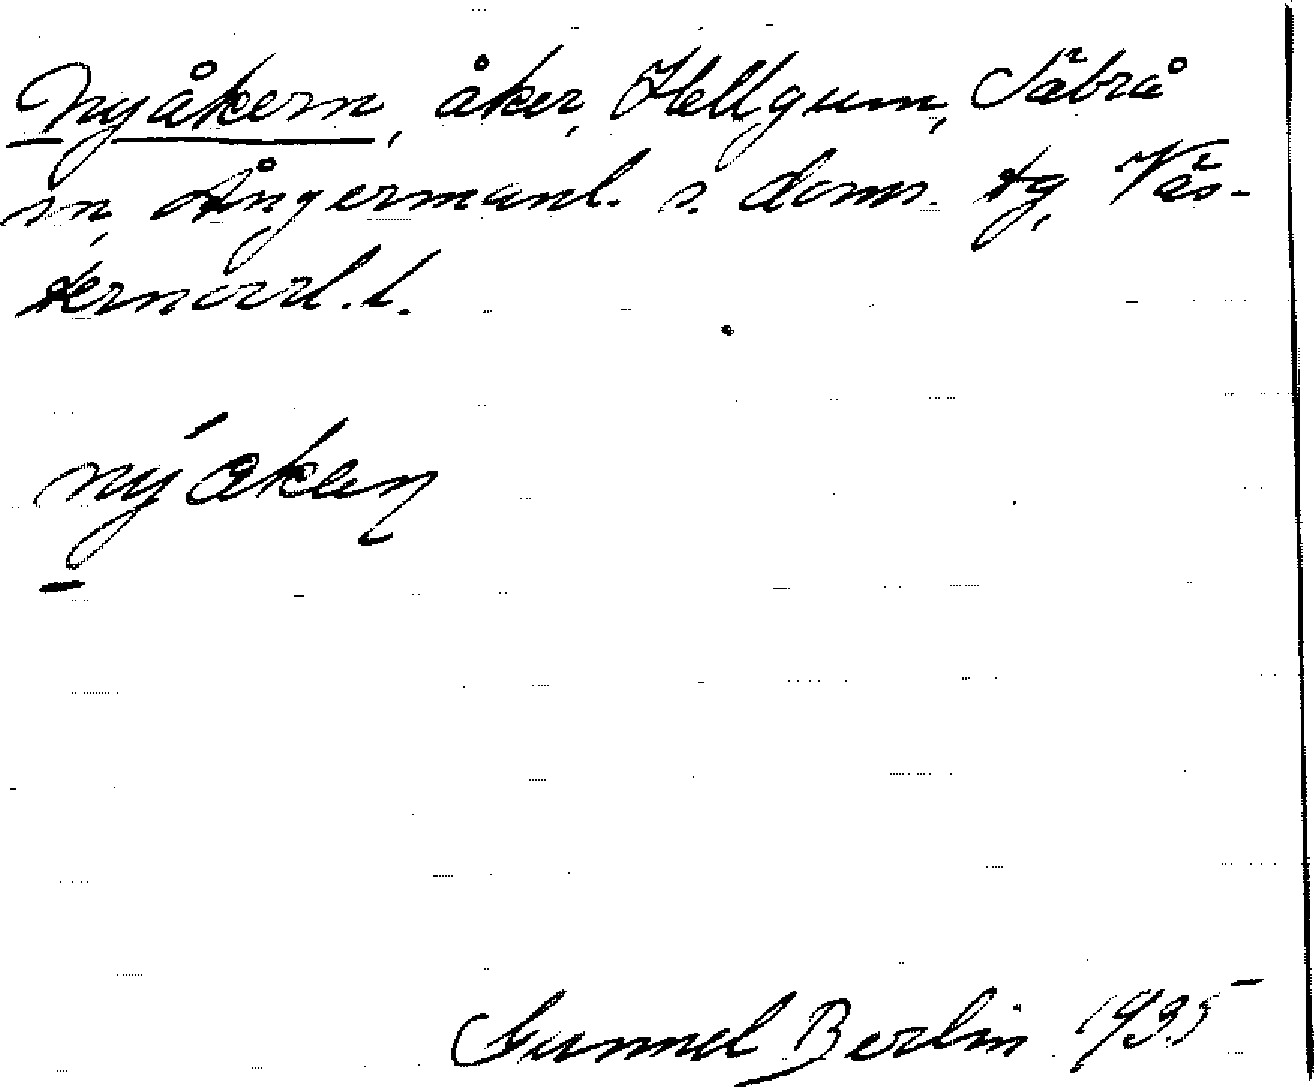 Nyåkern, åker, Hellgum, Säbrå
sn, Ångermanl. s. doms. tg, Väs-
ternorrl. l.
nýåkeɳ
Gunnel Berlin 1935